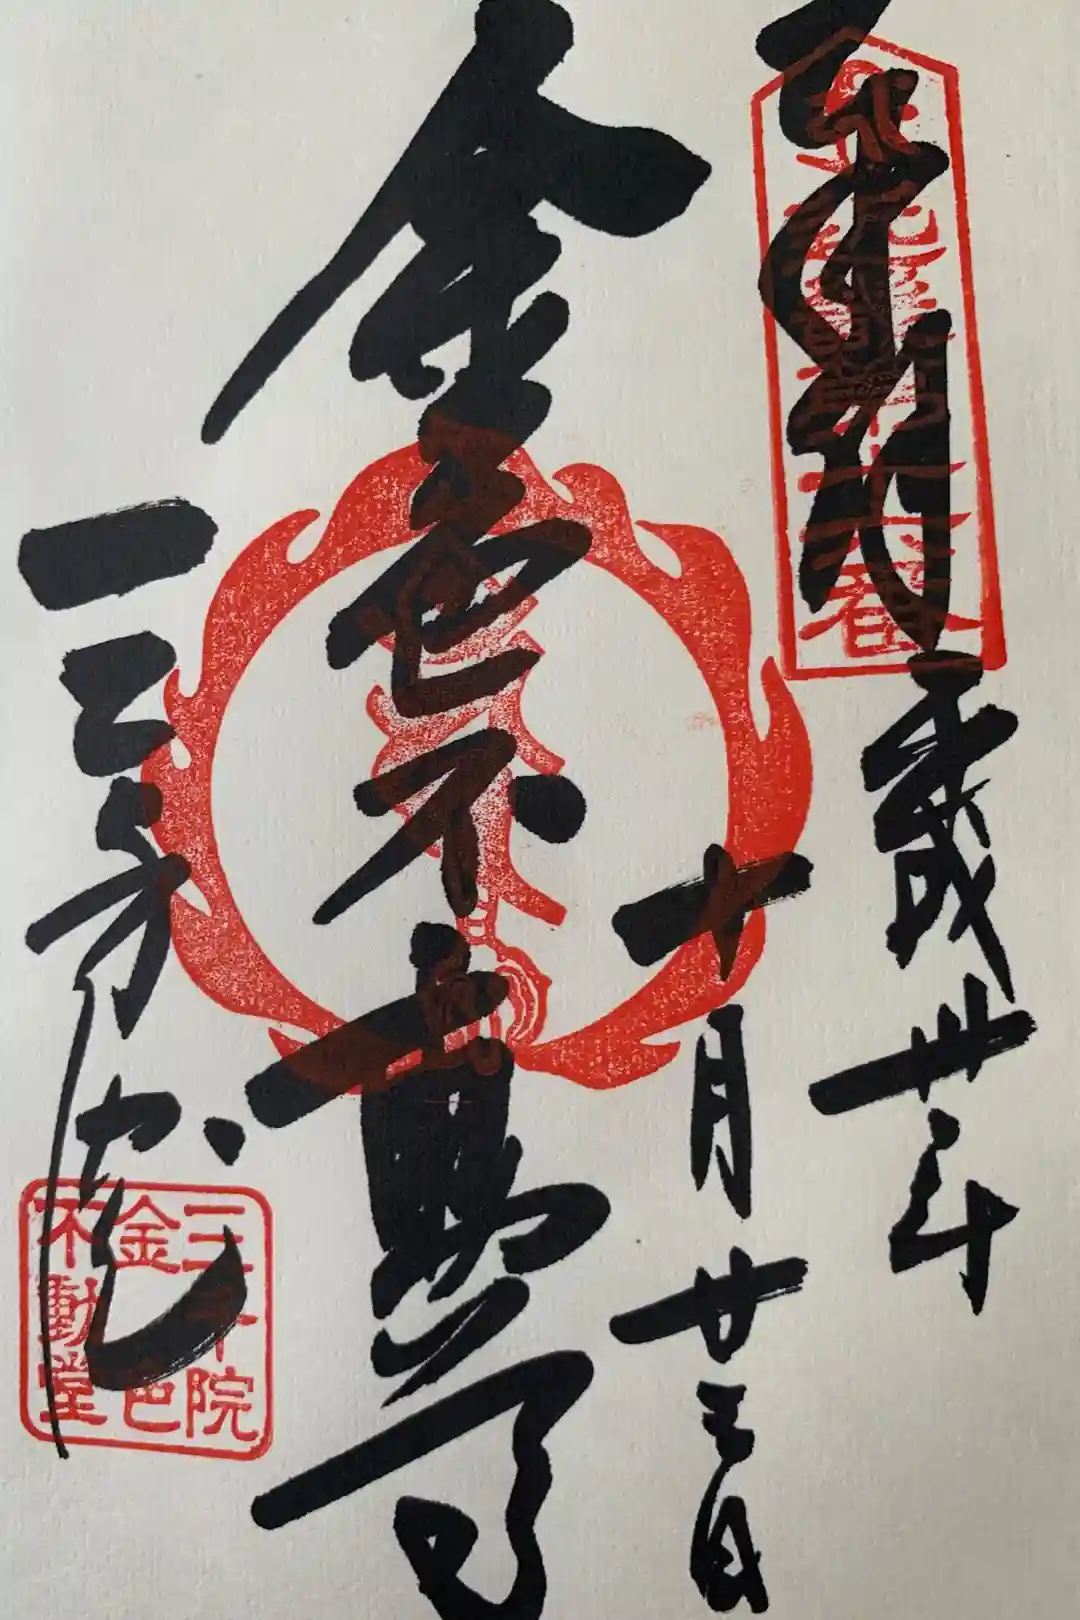 奉拝
第十六番
平成卅年
十月廿三日
金色不動尊
三千院
三千院
金色
不動堂